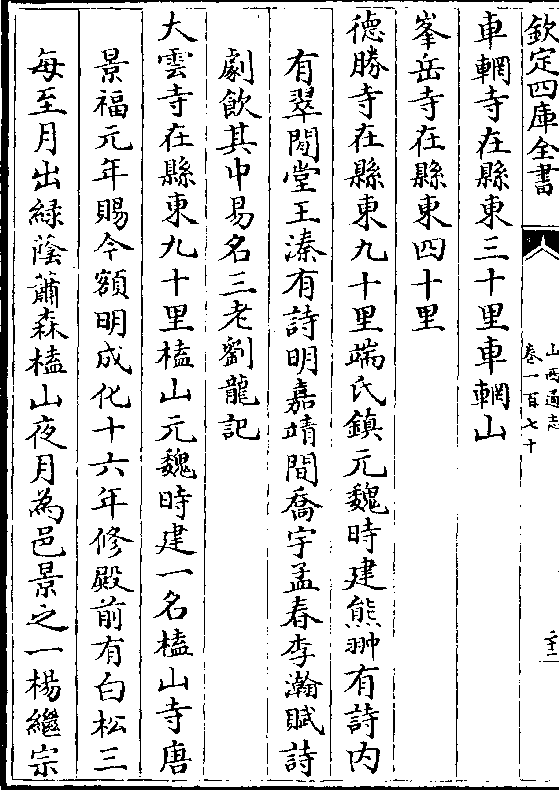 欽定四庫全書
山西通志
卷一百七十
車輞寺在縣東三十里車輞山
峯岳寺在縣東四十里
德勝寺在縣東九十里端氏鎮元魏時建熊翀有詩内
有翠閒堂王溱有詩明嘉靖間喬宇孟春李瀚賦詩
劇飲其中易名三老劉龍記
大雲寺在縣東九十里榼山元魏時建一名榼山寺唐
景福元年賜今額明成化十六年修殿前有白松三
每至月出緑蔭蕭森榼山夜月為邑景之一楊繼宗